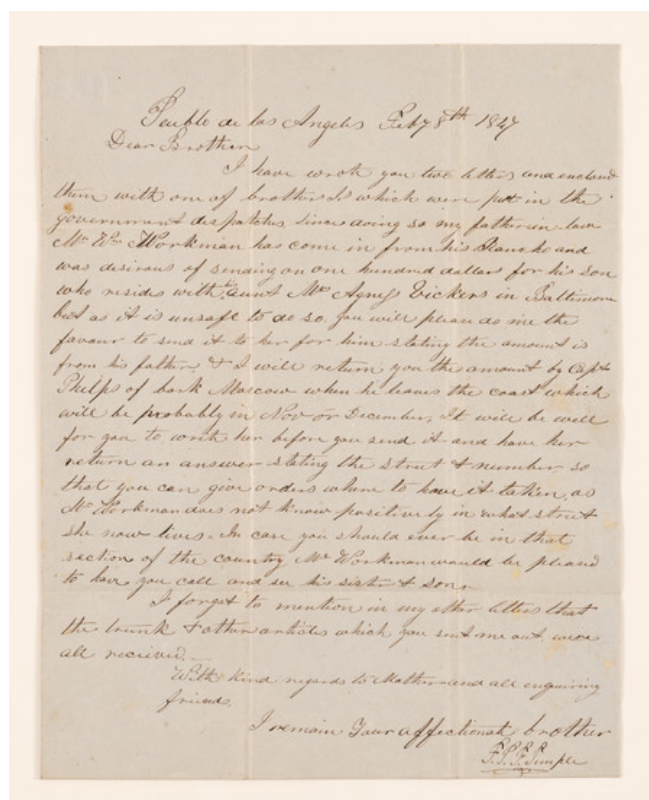 Pueblo de los Angeles Feby 8th 1847
Dear Brother
I have wrote you two letters and enclosed
them with one of brother J's which were put in the
government despatches since doing so my father in law
Mr Wm Workman has come in from his Rancho and
was desirous of sending on one hundred dollars for his son
who resides with aunt Mrs Agnes Vickers in Baltimore
but as it is unsafe to do so you will please do me the
favour to send it to her for him stating the amount is
from his father, & I will return you the amount by Capt
Phelps of bark Moscow when he leaves the coast which
will be probably in Nov or December, It will be well
for you to write her before you send it and have her
return an answer stating the street & number, so
that you can give orders where to have it taken, as
Mr Workman does not know positively in what street
she now lives. In case you should ever be in that
section of the country Mr Workman would be pleased
to have you call and see his sister & son.
I forgot to mention in my other letters that
the trunk & other articles which you sent me out were
all recieved.
With kind regards to Mother and all enquiring
friends.
I remain Your affectionate brother
F.P.F. Temple